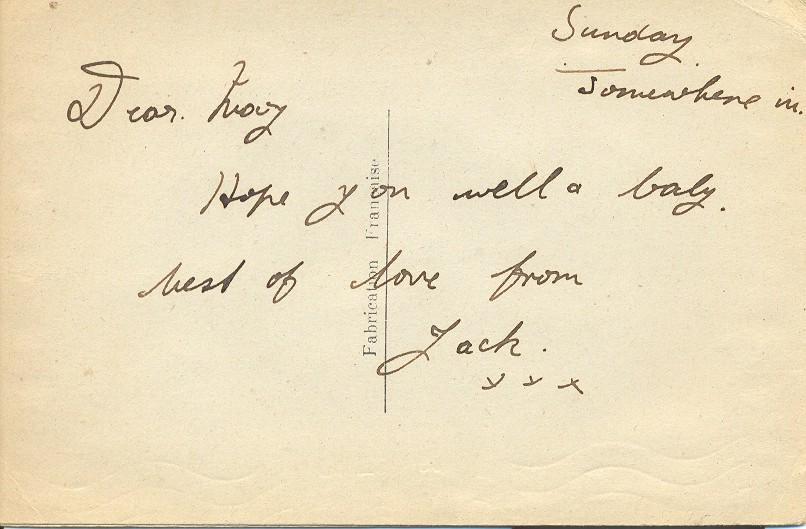 Sunday
Somewhere in.
Dear.
Hope you well a baby.
best of love from
Jack.
x x x
Fabrication Française